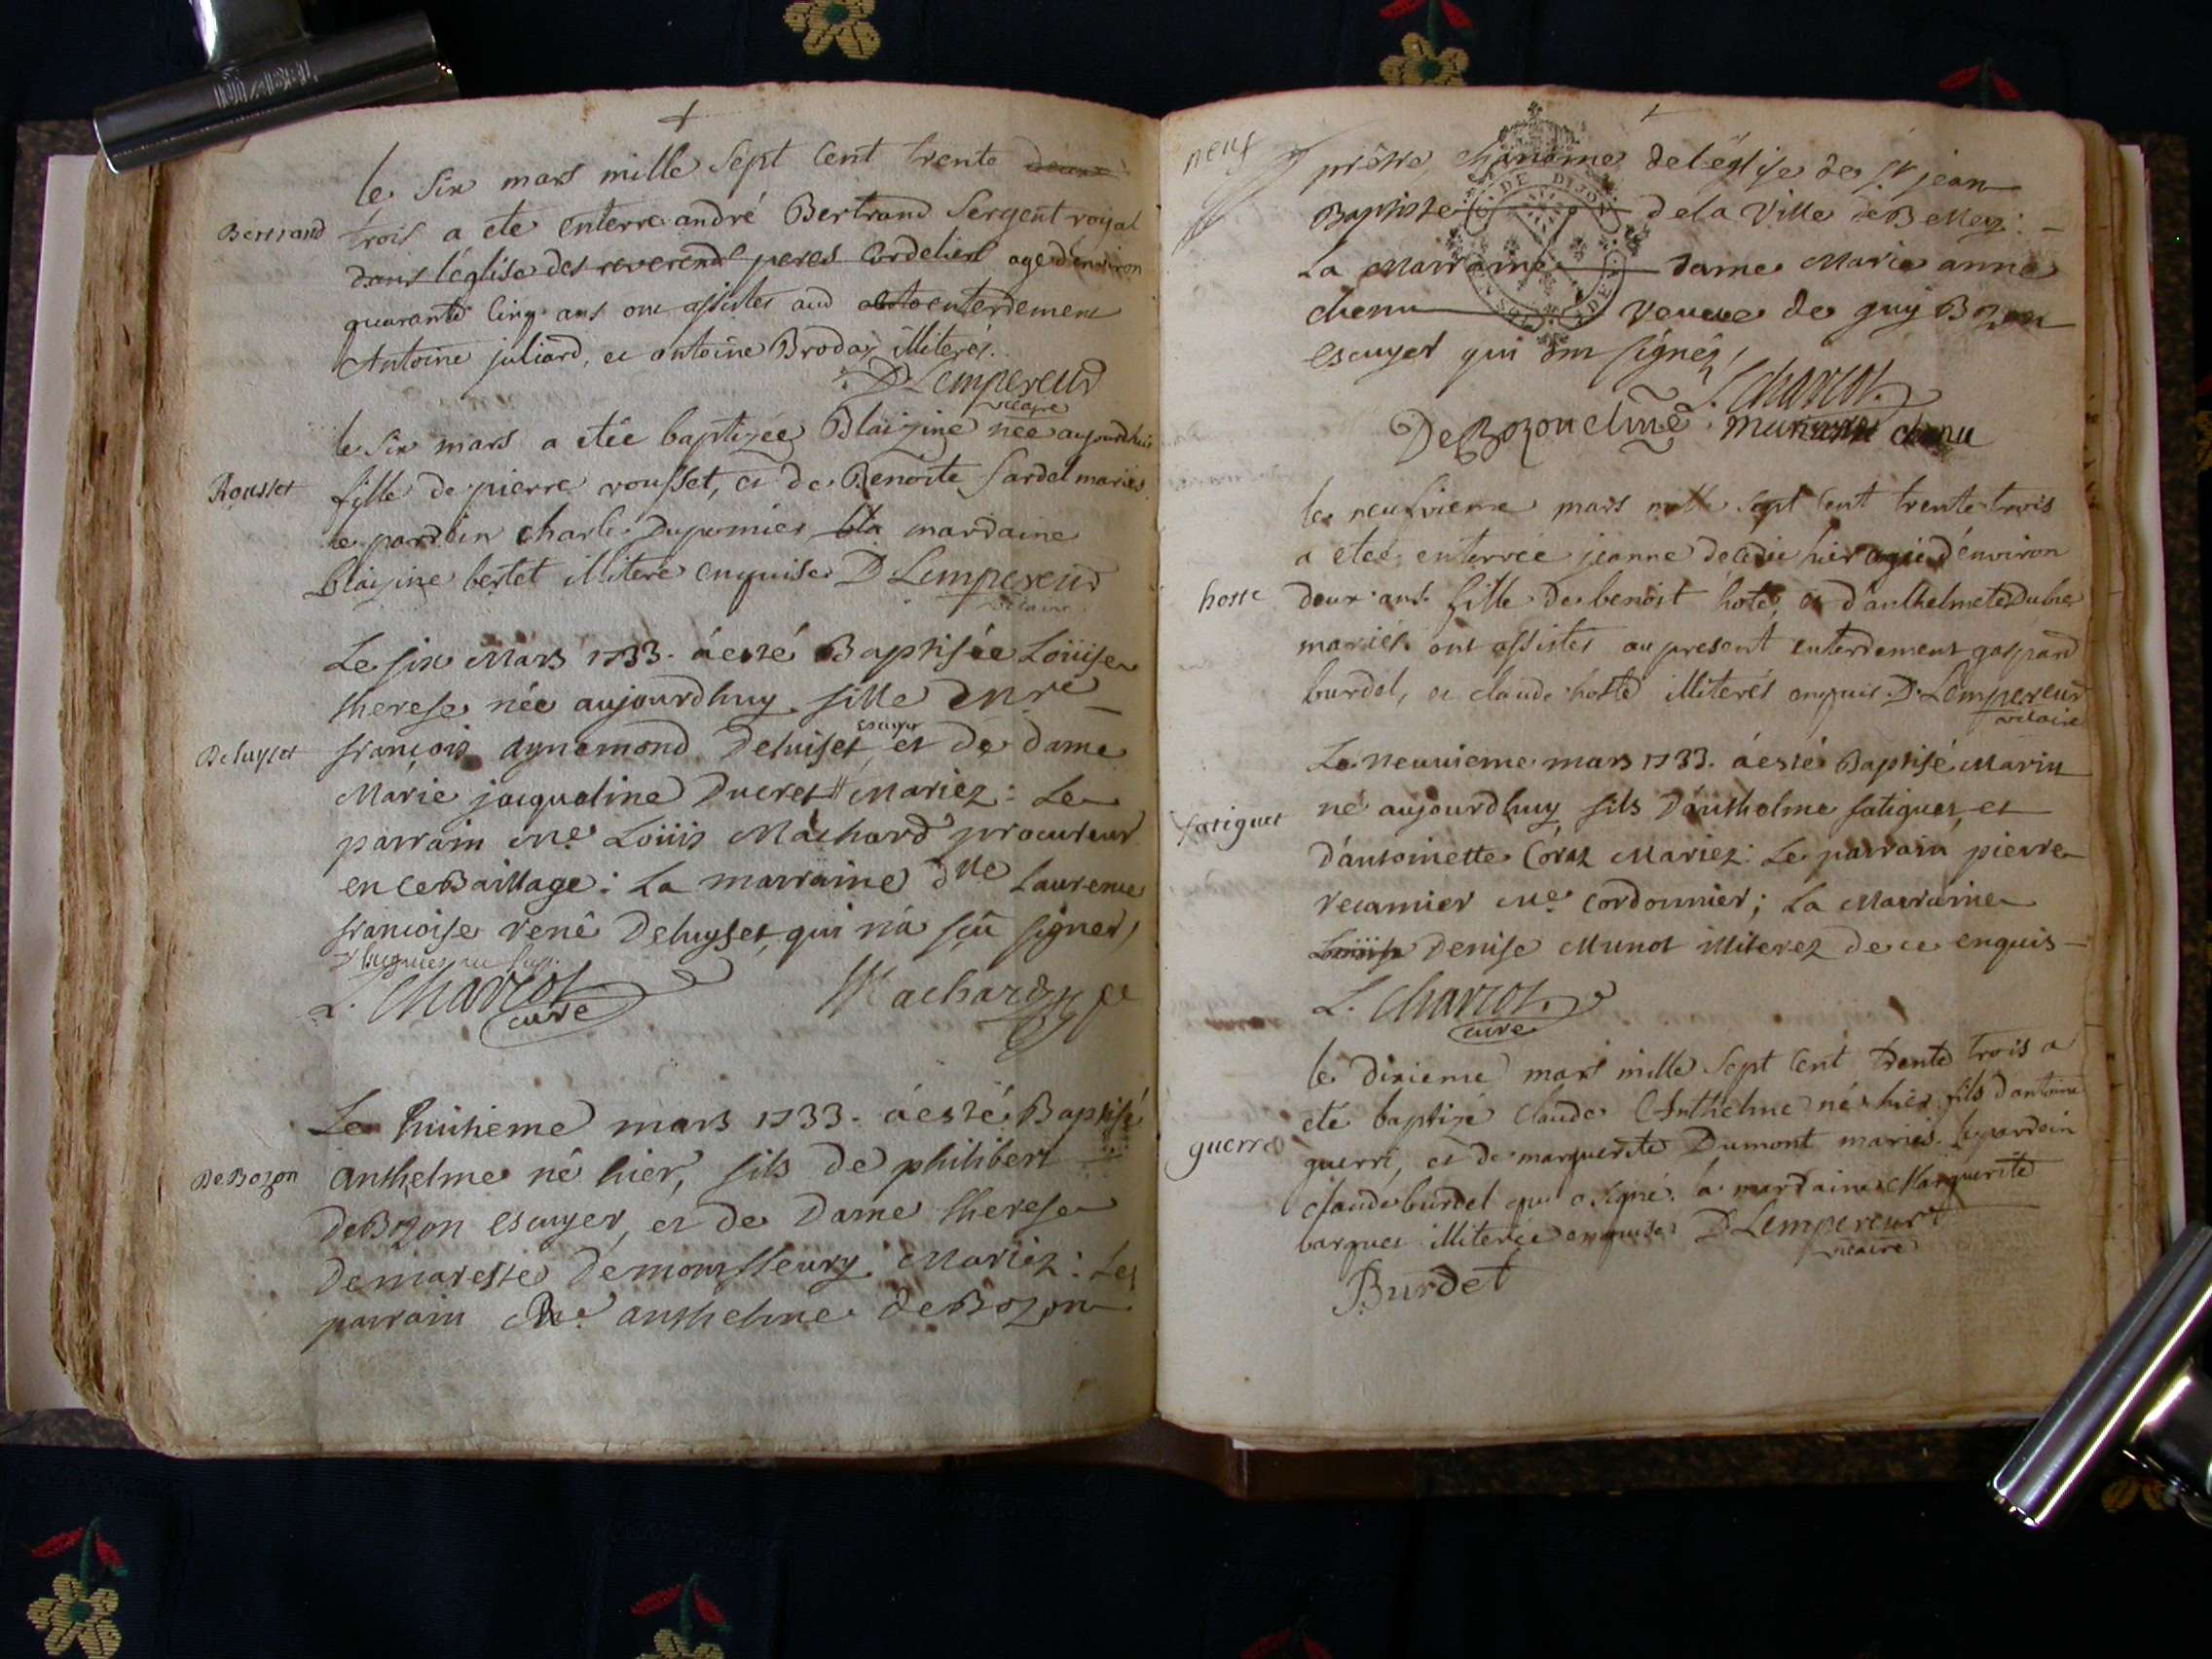 le six mars mille sept cent trente deux
Bertrand
trois a ete enterre andré Bertrand Sergent royal
dans léglise des reverends peres Cordeliers age d'environ
quarante cinq ans ont assistes aud enterdement
Antoine juliard, et antoine Brodas illiterés.
D Lempereur
vicaire
le six mars a etée baptizée Blaizine née aujourdhuis
Rousset
fille de pierre rousset, et de Benoite Sardet mariés
le pardin charle Dupomier la mardaine
blaizine bertet illiteré enquise D Lempereur
vicaire
Le six Mars 1733. á esté Baptisée Loüise
therese née aujourdhuy fille
escuyer
Deluyset
françois aynemond Deluiset, et de dame
Marie jacqueline Ducret Mariez: Le
parrain Me Loüis Machard procureur
en ce Baillage: La marraine dlle Laurence
françoise renê Deluyset qui n'a sçû signer,
L. Charcot
curé
Machard
Le huitieme mars 1733. á esté Baptisé
DeBozon
anthelme né hier, fils de philibert
deBozon escuyer, et de Dame therese
Demareste Demonfleury Mariez: Le
parrain Me anthelme deBozon
neuf
prêtre, chanoine de l'église de St jean
Baptiste de la Ville de Belley:
DE DIJON
La Marraine dame Marie anne
chenu veuve de guy Bozon
escuyer qui ont signéz,
L. Charcot
DeBozon
chenu
le neufvieme mars mille sept cent trente trois
a etée enterrée jeanne decedée hier agée d'environ
hoste
deux ans fille de benoist hote, et d'anthelmete Dubre
mariés. ont assistes au present enterdement gaspard
burdet, et claude hoste illiterés enquis D. Lempereur
vicaire
Le neuvieme mars 1733. á esté Baptisé Marin
fatiguet
né aujourdhuy fils d'anthelme fatiguet, et
d'antoinette Coraz Mariez: Le parrain pierre
recamier Me cordonnier; La Marraine
Loüise Denise Munot illiterez de ce enquis
L. Charcot
curé
le dixieme mars mille sept cent trente trois a
ete baptizé claude Anthelme né hier fils d'antoine
guerre
guerri, et de marguerite Dumont mariés. le pardain
claude burdet qui a signé. la mardaine Marguerite
barquet illiterée enquise D Lempereur
vicaire
Burdet